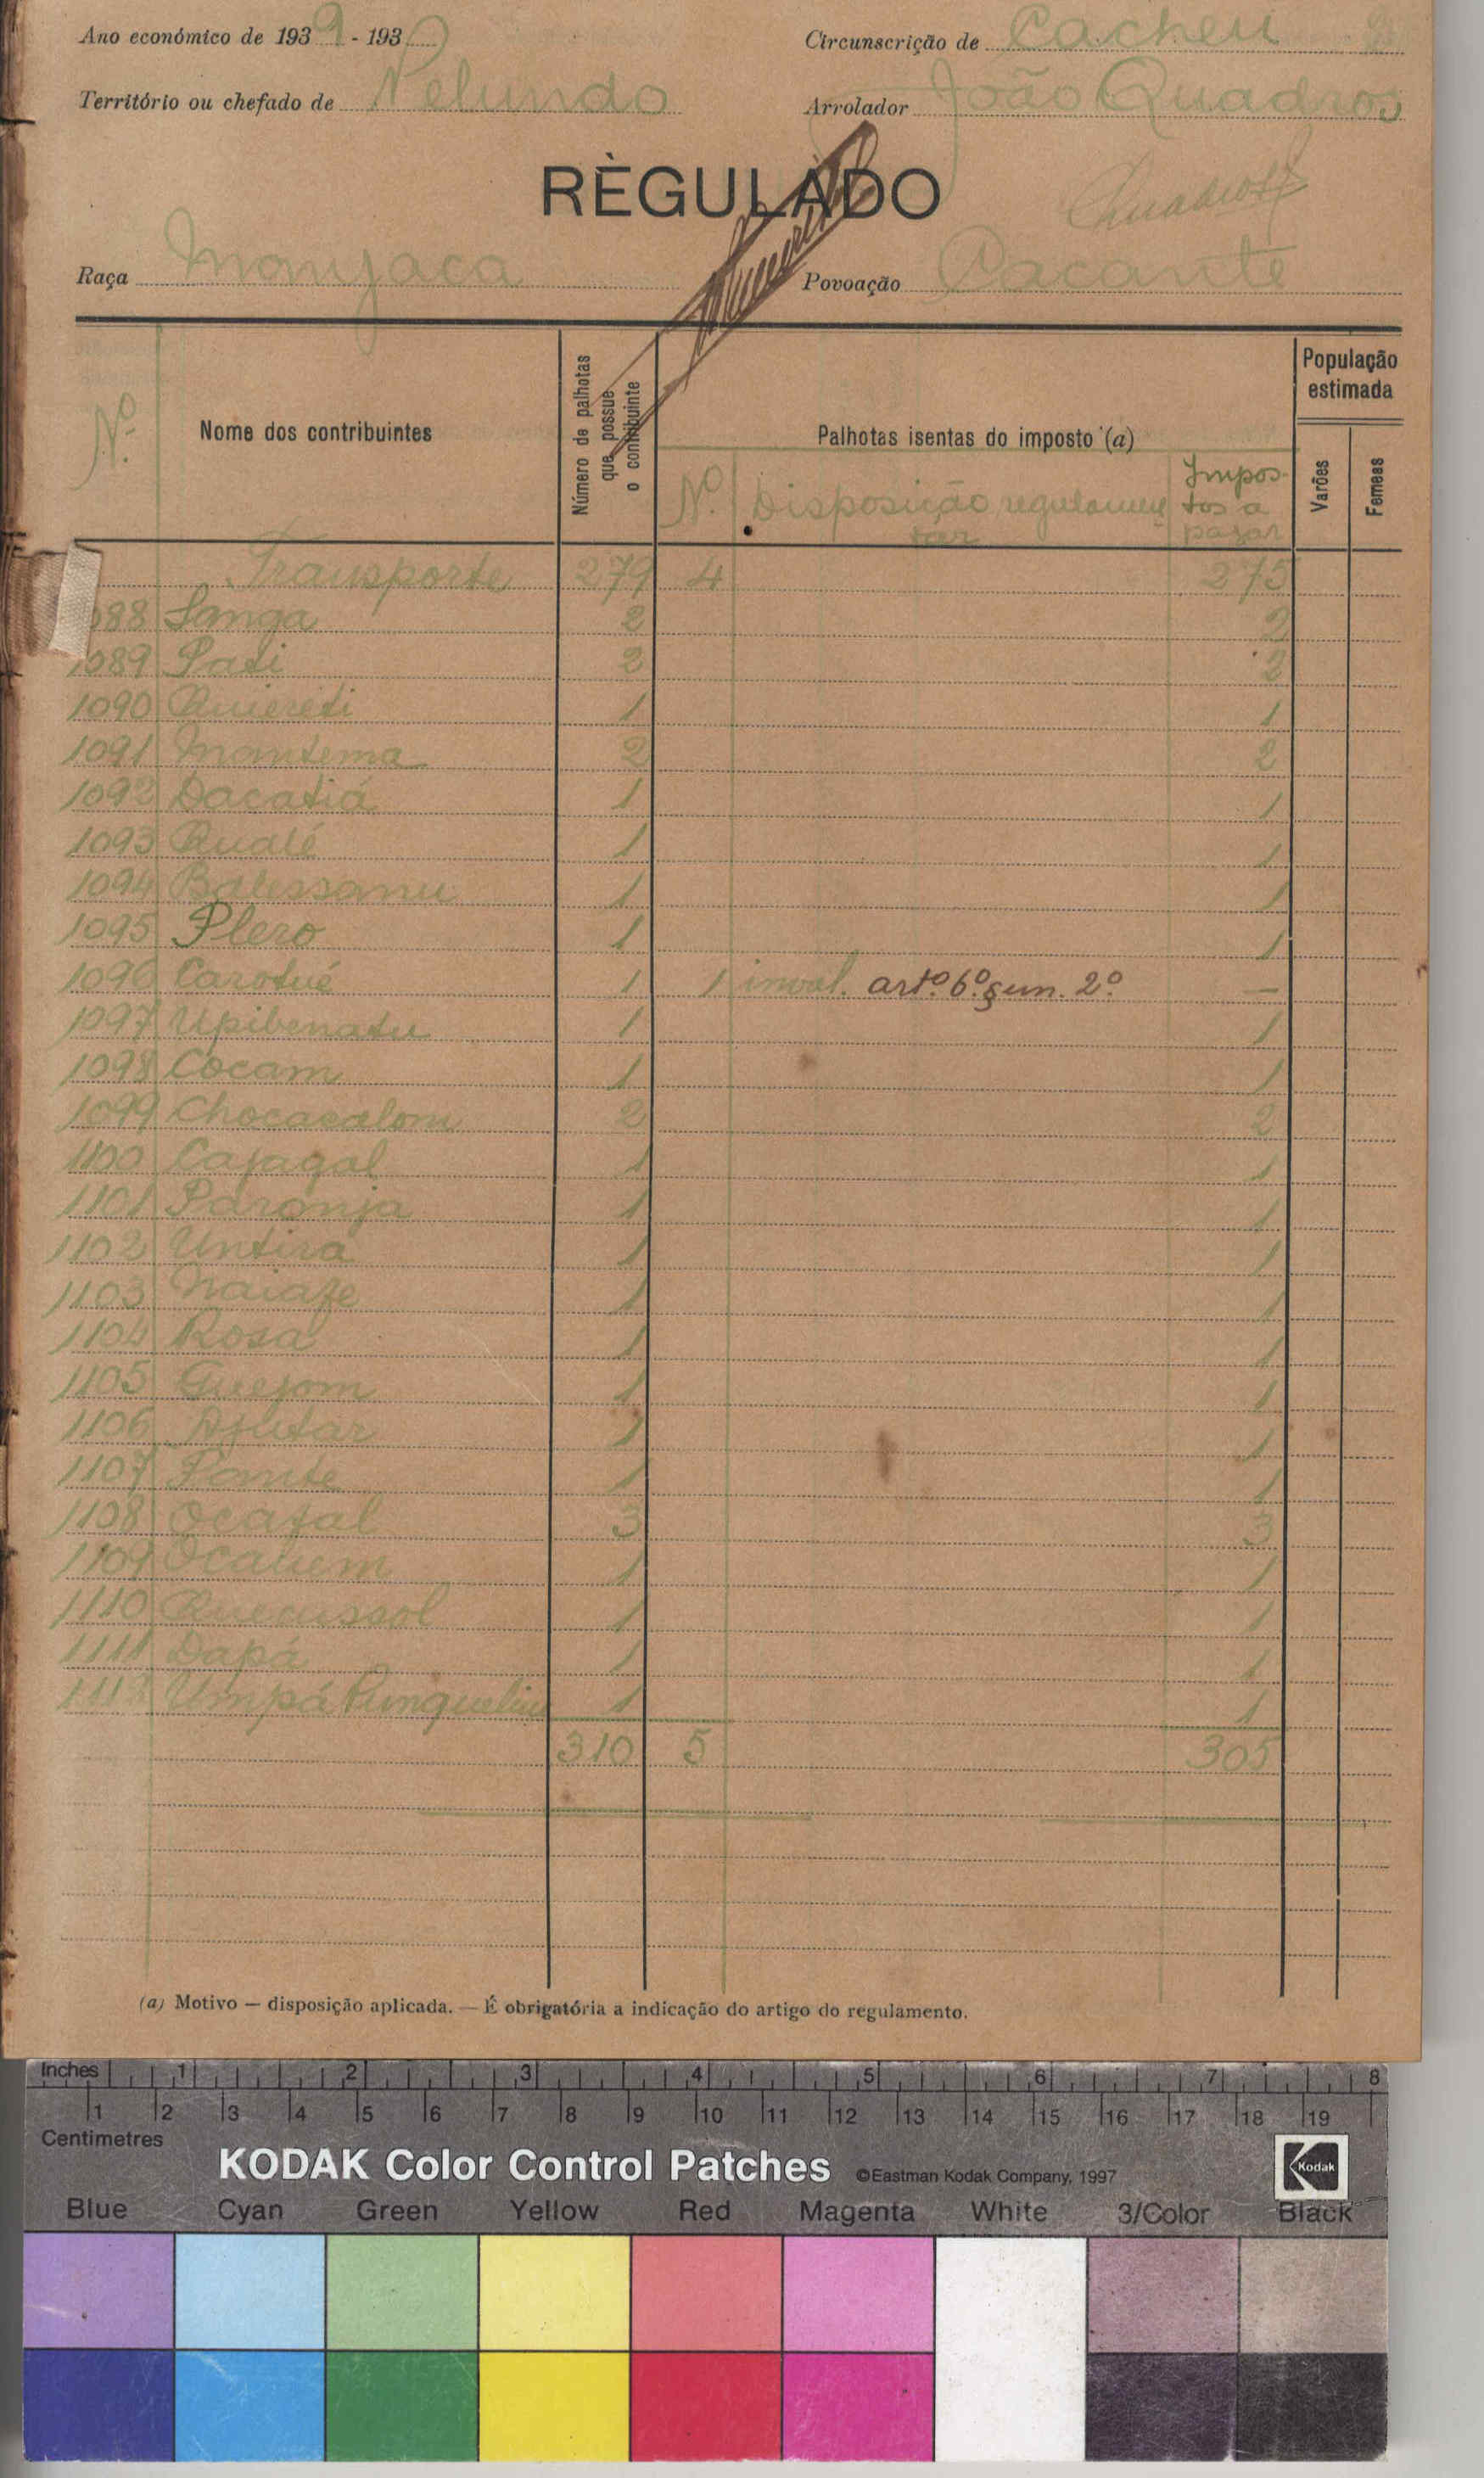 Ano económico de 1939 - 193
Circunscrição de Cacheu
Território ou chefado de Pelundo
Arrolador João Quadros
RÈGULADO
Quadros
Raça Manjaca
Povoação Cacante
Nº
Nome dos contribuintes
Número de palhotas que possue o contribuinte
Palhotas isentas do imposto (a)
População estimada
Nº. Disposição regulamentar
Impostos a pagar
Varões
Femeas
Transporte 279 4 275
088 Sanga 2 2
1089 Pati 2 2
1090 Quiereti 1 1
1091 Mantema 2 2
1092 Dacatiá 1 1
1093 Qualé 1 1
1094 Balessanu 1 1
1095 Plero 1 1
1096 Carotué 1 1 inval. artº. 6º. § un. 2º —
1097 Upibenatu 1 1
1098 Cocam 1 1
1099 Chocacalom 2 2
1100 Cajagal 1 1
1101 Paronja 1 1
1102 Untira 1 1
1103 Naiafe 1 1
1104 Rosa 1 1
1105 Guejom 1 1
1106 1 1
1107 Fante 1 1
1108 Ocafal 3 3
1109 Ocaliem 1 1
1110 Quecussol 1 1
1111 Dapá 1 1
1112 Umpá 1 1
310 5 305
(a) Motivo — disposição aplicada. — É obrigatória a indicação do artigo do regulamento.
Inches 1 2 3 4 5 6 7 8
1 2 3 4 5 6 7 8 9 10 11 12 13 14 15 16 17 18 19
Centimetres
KODAK Color Control Patches ©Eastman Kodak Company, 1997 Kodak
Blue Cyan Green Yellow Red Magenta White 3/Color Black